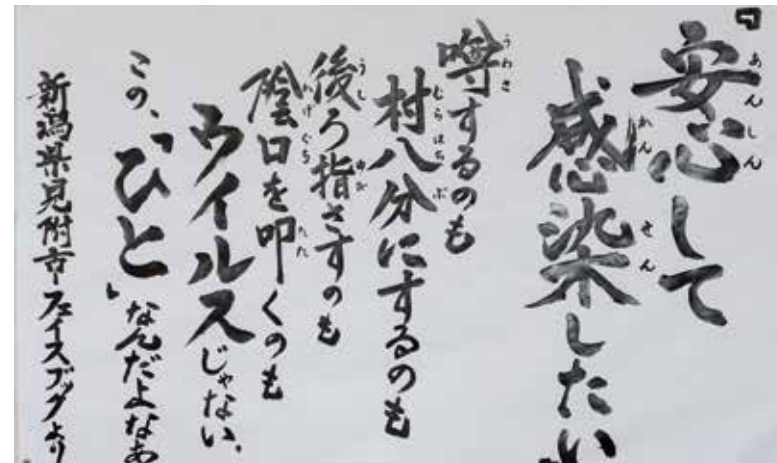 『安心して
感染したい
噂するのも
村八分にするのも
後ろ指さすのも
陰口を叩くのも
ウイルスじゃない、
この、「ひと」なんだよなあ
新潟県見附市フェイスブックより